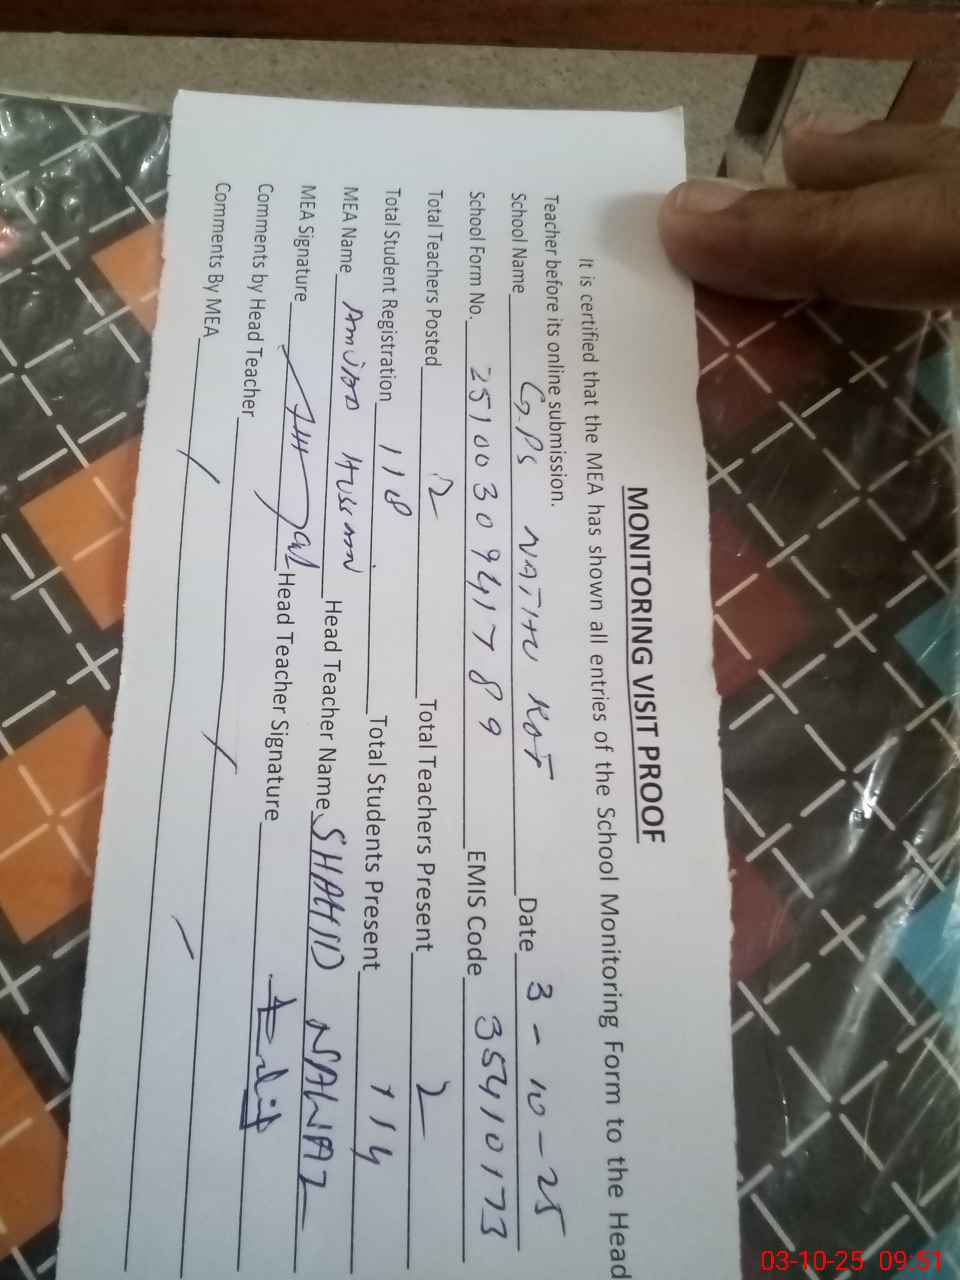 MONITORING VISIT PROOF
It is certified that the MEA has shown all entries of the School Monitoring Form to the Head
Teacher before its online submission.
School Name G.PS NATHU KOT Date 3-10-25
School Form No. 251003094178 89 EMIS Code 35410173
Total Teachers Posted 2 Total Teachers Present 2
Total Student Registration 118 Total Students Present 114
MEA Name AMJAD HUSSAIN Head Teacher Name SHAHID NAWAZ
MEA Signature Head Teacher Signature
Comments by Head Teacher
Comments By MEA
03-10-25 09:51